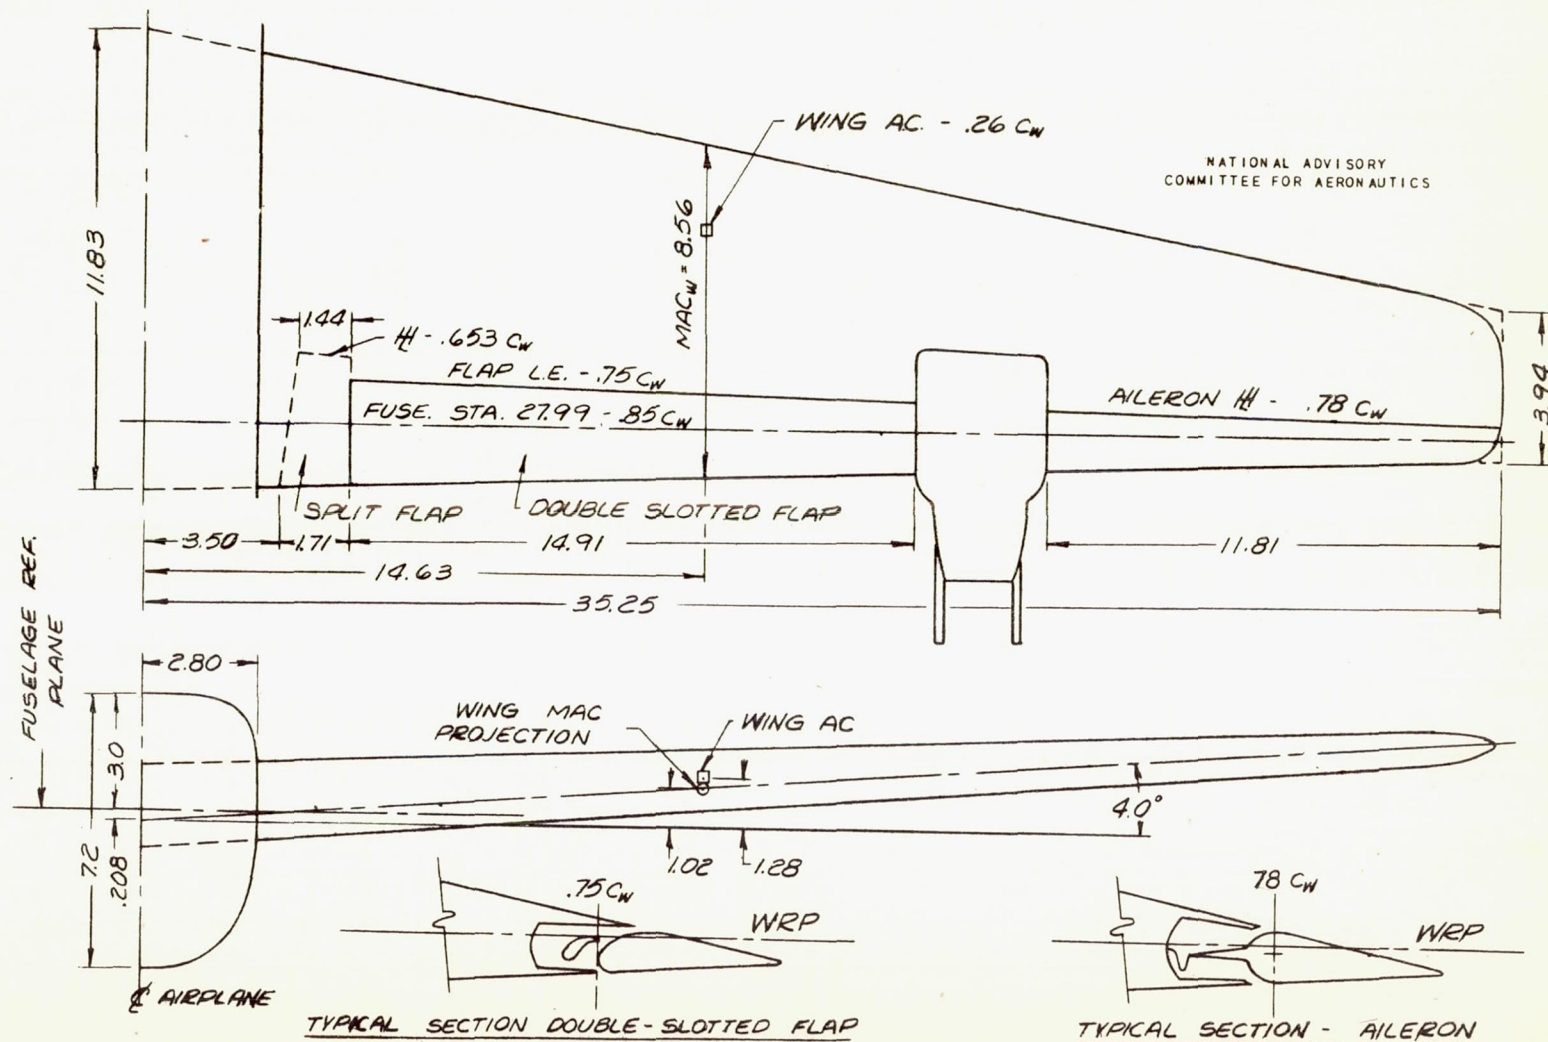 WING A.C. - .26 Cw
NATIONAL ADVISORY
COMMITTEE FOR AERONAUTICS
11.83
MACw = 8.56
1.44
HL - .653 Cw
FLAP L.E. - .75 Cw
FUSE. STA. 27.99 - .85 Cw
AILERON HL - .78 Cw
3.94
SPLIT FLAP
DOUBLE SLOTTED FLAP
3.50
1.71
14.91
11.81
14.63
35.25
FUSELAGE REF.
PLANE
2.80
WING MAC
PROJECTION
WING AC
3.0
7.2
.208
4.0°
1.02
1.28
.75 Cw
WRP
78 Cw
WRP
℄ AIRPLANE
TYPICAL SECTION DOUBLE-SLOTTED FLAP
TYPICAL SECTION - AILERON